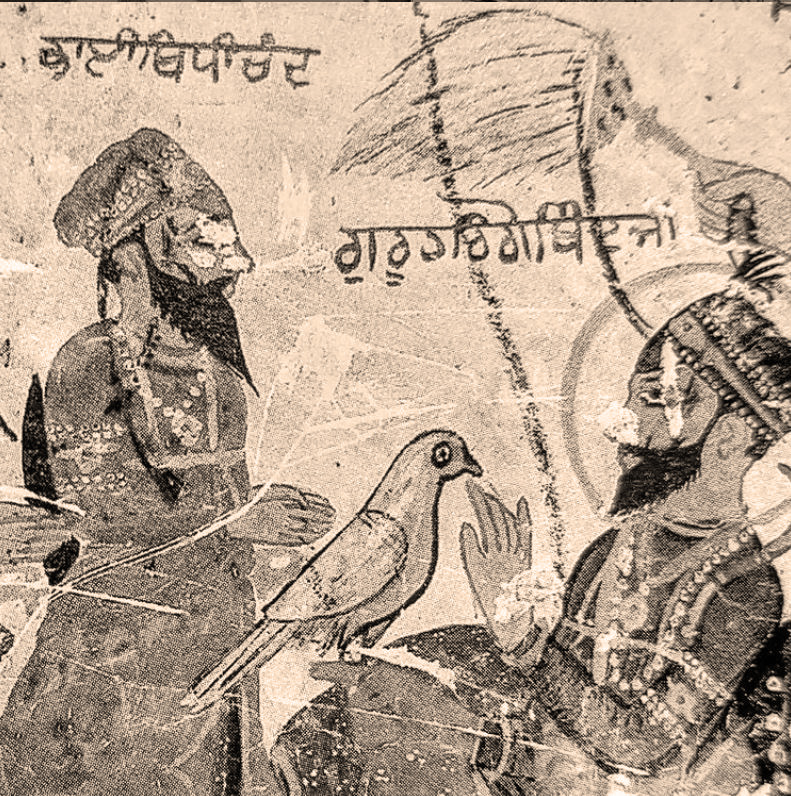 ਭਾਈਬਿਧੀਚੰਦ
ਗੁਰੂਹਰਿਗੋਬਿੰਦਜੀ